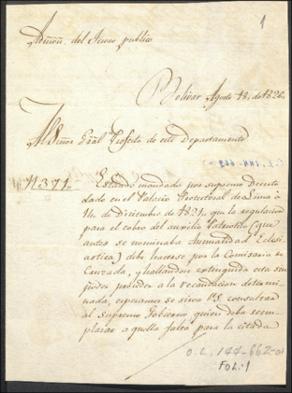 1
Admōn. del Tesoro publico
Bolivar Agosto 18, de 1826.
Al Señor Gral Prefecto de este Departamento
N.371.
Estando mandado por supremo Decreto
dado en el Palacio Protectoral de Lima à
14. de Diciembre de 1821. que la regulacion
para el cobro del auxilio Patriotico (que
antes se nominaba Anualidad Eclesi-
astica) deba hacerse por la Comisaria de
Cruzada, y hallandose extinguida esta sin
poder proceder a la recaudacion deter-
minada, esperamos se sirva VS. consultar
al Supremo Gobierno quien deba reem-
plazar a quella falta para la citada
O.L. 144-662-01
FOL.1